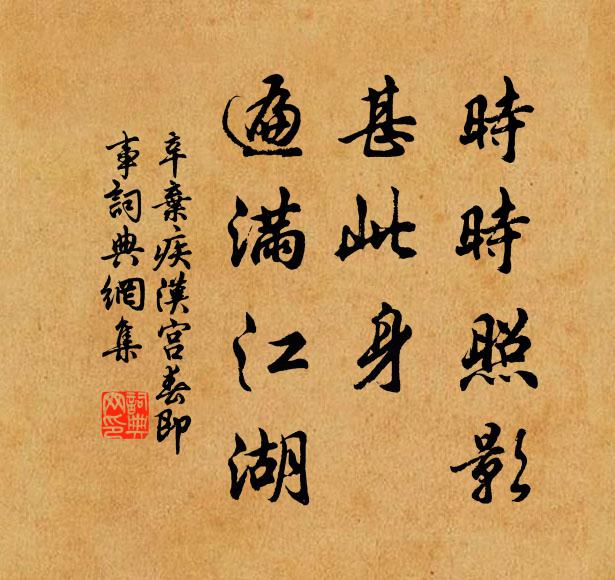 時時照影
甚此身
遍滿江湖
辛棄疾漢宮春即
事詞典網集
詞典
网印